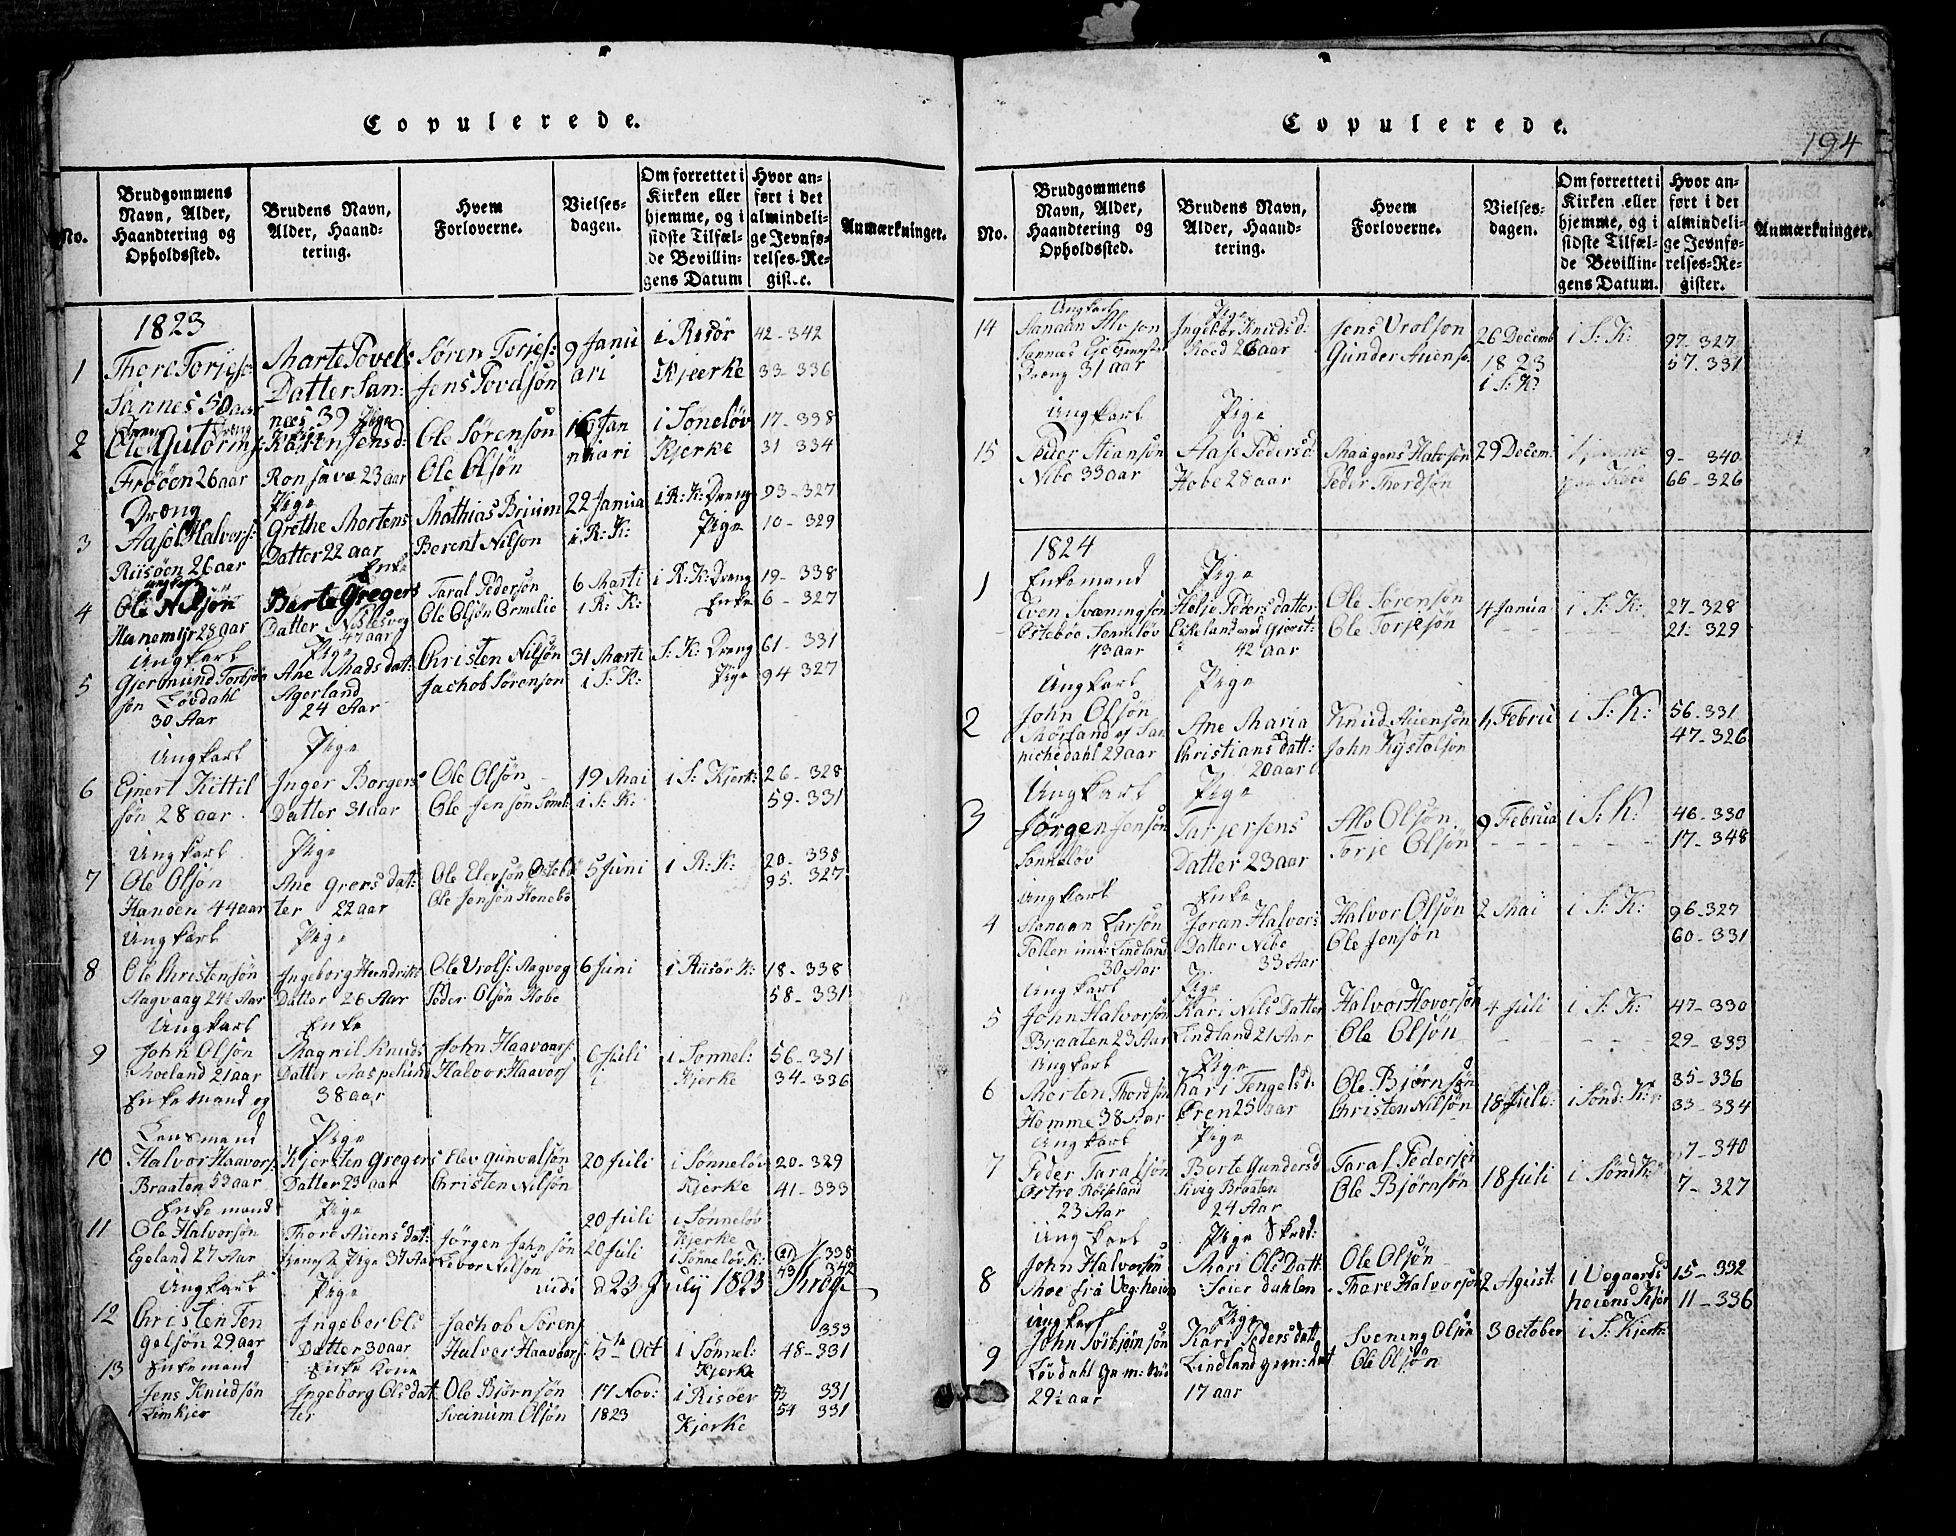 Copulerede.
No.
Brudgommens Navn, Alder, Haandtering og Opholdssted.
Brudens Navn, Alder, Haandtering.
Hvem Forloverne.
Vielsesdagen.
Om forrettet i Kirken eller hjemme, og i sidste Tilfælde Bevillingens Datum
Hvor anført i det almindelige Jevnførelses-Register.
Anmærkninger.
1823
1 Thore Torjes: Sannes 50 aar
Marte Povels Datter San: næs 39 Pige
Søren Torjes: Jens Povelsøn
9 Janu ari
i Risör Kjerke
42-342
33-336
2 Ole Frøöen 26 aar Dræng
Jensd: 23 aar Pige
Ole Sørensøn Ole Olsøn
16 Jan nuari
i Söneløv Kjerke
17-338
31 334
3 Halvors: Riisøen 26 aar
Grethe Mortens Datter 22 aar
Mathias Bruun Berent Nilsøn
22 Janua i R: K:
i R: K: Dræng Pige
93-327
10-329
4 Ole Nilsøn 28 aar Ungkarl
Enke Berte Gregers Datter 47 aar Pige
Taral Pedersøn Ole Olsøn
6 Marti i R: K:
i R: K: Dræng Enke
19-338
6-327
5 Gjermund Løvdahl 30 Aar
Ane Mads dat: Agerland 24 Aar
Christen Nilsøn Jachob Sørensøn
31 Marti i S: K:
S: K: Dræng Pige
61-331
94 327
Ungkarl
Pige
6 Ejnert Kittil søn 28 aar.
Inger Borgers Datter 31 aar
Ole Olsøn Ole Jensøn
19 Mai i S: K:
i S: Kjerk:
26-328
59-331
Ungkarl
Pige
7 Ole Olsøn 44 aar
Ane Grers dat: ter 22 aar
Ole Elevsøn Ole Jensøn
5 Juni
i R: K:
20-338
95-327
Ungkarl
Pige
8 Ole Christensøn Aagvaag 24½ Aar
Ingeborg Hendriks Datter 26 Aar
Ole Urols: Aagvog Peder Olsøn Hobe
6 Juni
i Riisør K:
18-338
58-331
Ungkarl
Enke
9 John Olsøn Moeland 21 aar
Magnil Knuds Datter 38 aar
John Haavaars: Halvor Haavors
6 Juli
i Sønnel: Kjerke
56-331
34-336
Enkemand og Lensmand
Pige
10 Halvor Haavors: Braaten 53 aar
Kjersten Gregers Datter 23 aar
Elev Gunvalsøn Christen Nilsøn
20 Juli
i Sønneløv Kjerke
20-329
41-333
Enkemand
Pige
11 Ole Halvorsøn Egeland 27 Aar
Thore Auens dat: Pige 37 Aar
Jørgen Jahnsøn Nilsøn
20 Juli
20 Juli
i Sønneløv Kjerke
i Sønneløv K:
338
43 342
Ungkarl
Pige
vidi d 23 Julij 1823
12 Christen Ten gelsøn 29 aar
Ingeber Ols Datter 30 aar
Jachob Sörens Halvor Haavors:
5te Oct
i Sønnel: Kjerke
333
48-331
13 Enkemand Jens Knudsøn Limkjer
Enke Kone Ingeborg Ols dat: ter
Ole Bjørnsøn Sveinum Olsøn
17 Nov: 1823
i Risoer Kjerke
331
54 331
Copulerede.
194
No.
Brudgommens Navn, Alder, Haandtering og Opholdssted.
Brudens Navn, Alder, Haandtering.
Hvem Forloverne.
Vielsesdagen.
Om forrettet i Kirken eller hjemme, og i sidste Tilfælde Bevillingens Datum.
Hvor anført i det almindelige Jevnførelses-Register.
Anmærkninger.
14 Ungkarl Dræng 31 aar
Pige Ingebor Knudsd: 26 aar
Jens Urolson Gunder Auens:
26 Decemb 1823 i S: K:
i S: K:
97-327
57-331
Ungkarl
Pige
15 Nibe 33 aar
Aase Peders d: Hobe 28 aar
Maagens Halvorsøn Peder Thordsøn
29 Decem:
9-340
66-326
1824
1 Enkemand Even Sveningsøn Østebøe Sønneløv 43 aar
Pige Helje Peders datter 42 aar
Ole Sørensön Ole Torjesøn
4 Janua
i S: K:
27-328
21-329
Ungkarl
Pige
2 John Olsøn 29 aar
Ane Maria Christians datt: 20 aar
Knud Auensøn John Kystolson
i S: K:
56-331
47-326
Ungkarl
Pige
3 Jørgen Jensøn Sønneløv
Tarjersens Datter 23 aar
Alv Olsøn Torje Olsön
9 Februa
i S: K:
46-330
17-348
Ungkarl
Enke
4 Aanaan Larsøn 30 Aar
Joran Halvors: Datter Nibe 33 Aar
Halvor Olsøn Ole Jensøn
2 Mai
i S: K:
96-327
60-331
Ungkarl
Pige
5 John Halvorsøn Braaten 23 Aar
Kari Nils Datter Lindland 21 Aar
Halvor Hovorsøn Ole Olsøn
4 Juli
i S: K:
47-330
29-333
Ungkarl
Pige
6 Morten Thordsøn Homme 38 Aar
Kari Tengelsd: Øren 25 aar
Ole Bjørnsøn Christen Nilsøn
18 Juli:
i Sönd: K:r
35-336
33-334
Ungkarl
Pige
7 Peder Taralsøn Østre Röiseland 23 Aar
Berte Gundersd Braaten 24 Aar
Taral Pedersøn Ole Bjørnsøn
18 Juli
i Søndk:
7-340
7-327
Ungkarl
Pige
8 John Halvorsøn Moe frå Veg:heien
Mari Ols Datt Seierdahlen
Ole Olsøn Thore Halvorsøn
2 Agust:
i Vegaards heiens Kjer
15-332
11-336
Ungkarl
Pige
9 John Løvdahl 29½ aar
Kari Peders datt Lindland 17 aar
Svening Olsøn Ole Olsøn
3 October
i S: Kjerk: